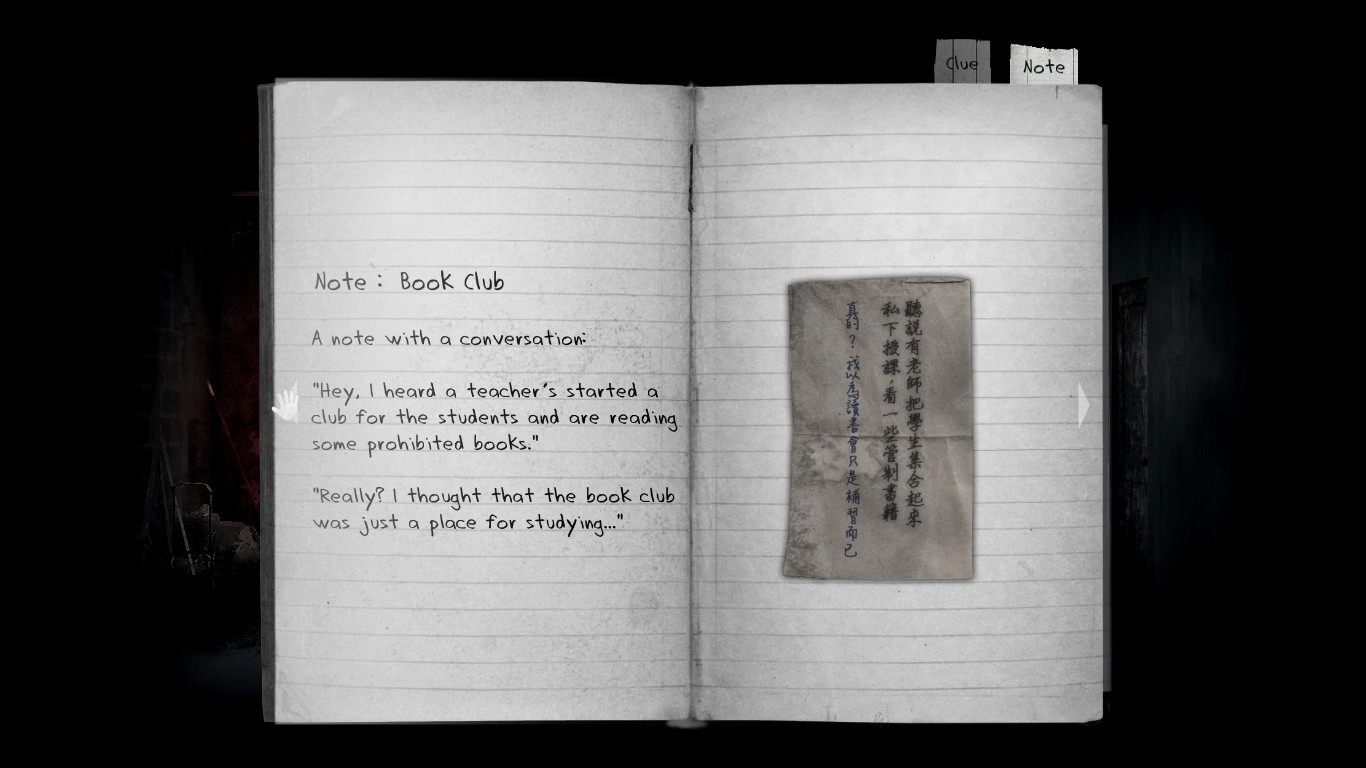 Clue
Note
Note : Book Club
A note with a conversation:
"Hey, I heard a teacher's started a
club for the students and are reading
some prohibited books."
"Really? I thought that the book club
was just a place for studying..."
聽說有老師把學生集合起來
私下授課，看一些管制書籍
真的？我以為讀書會只是補習而已